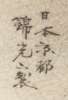 日本京都
錦光山製